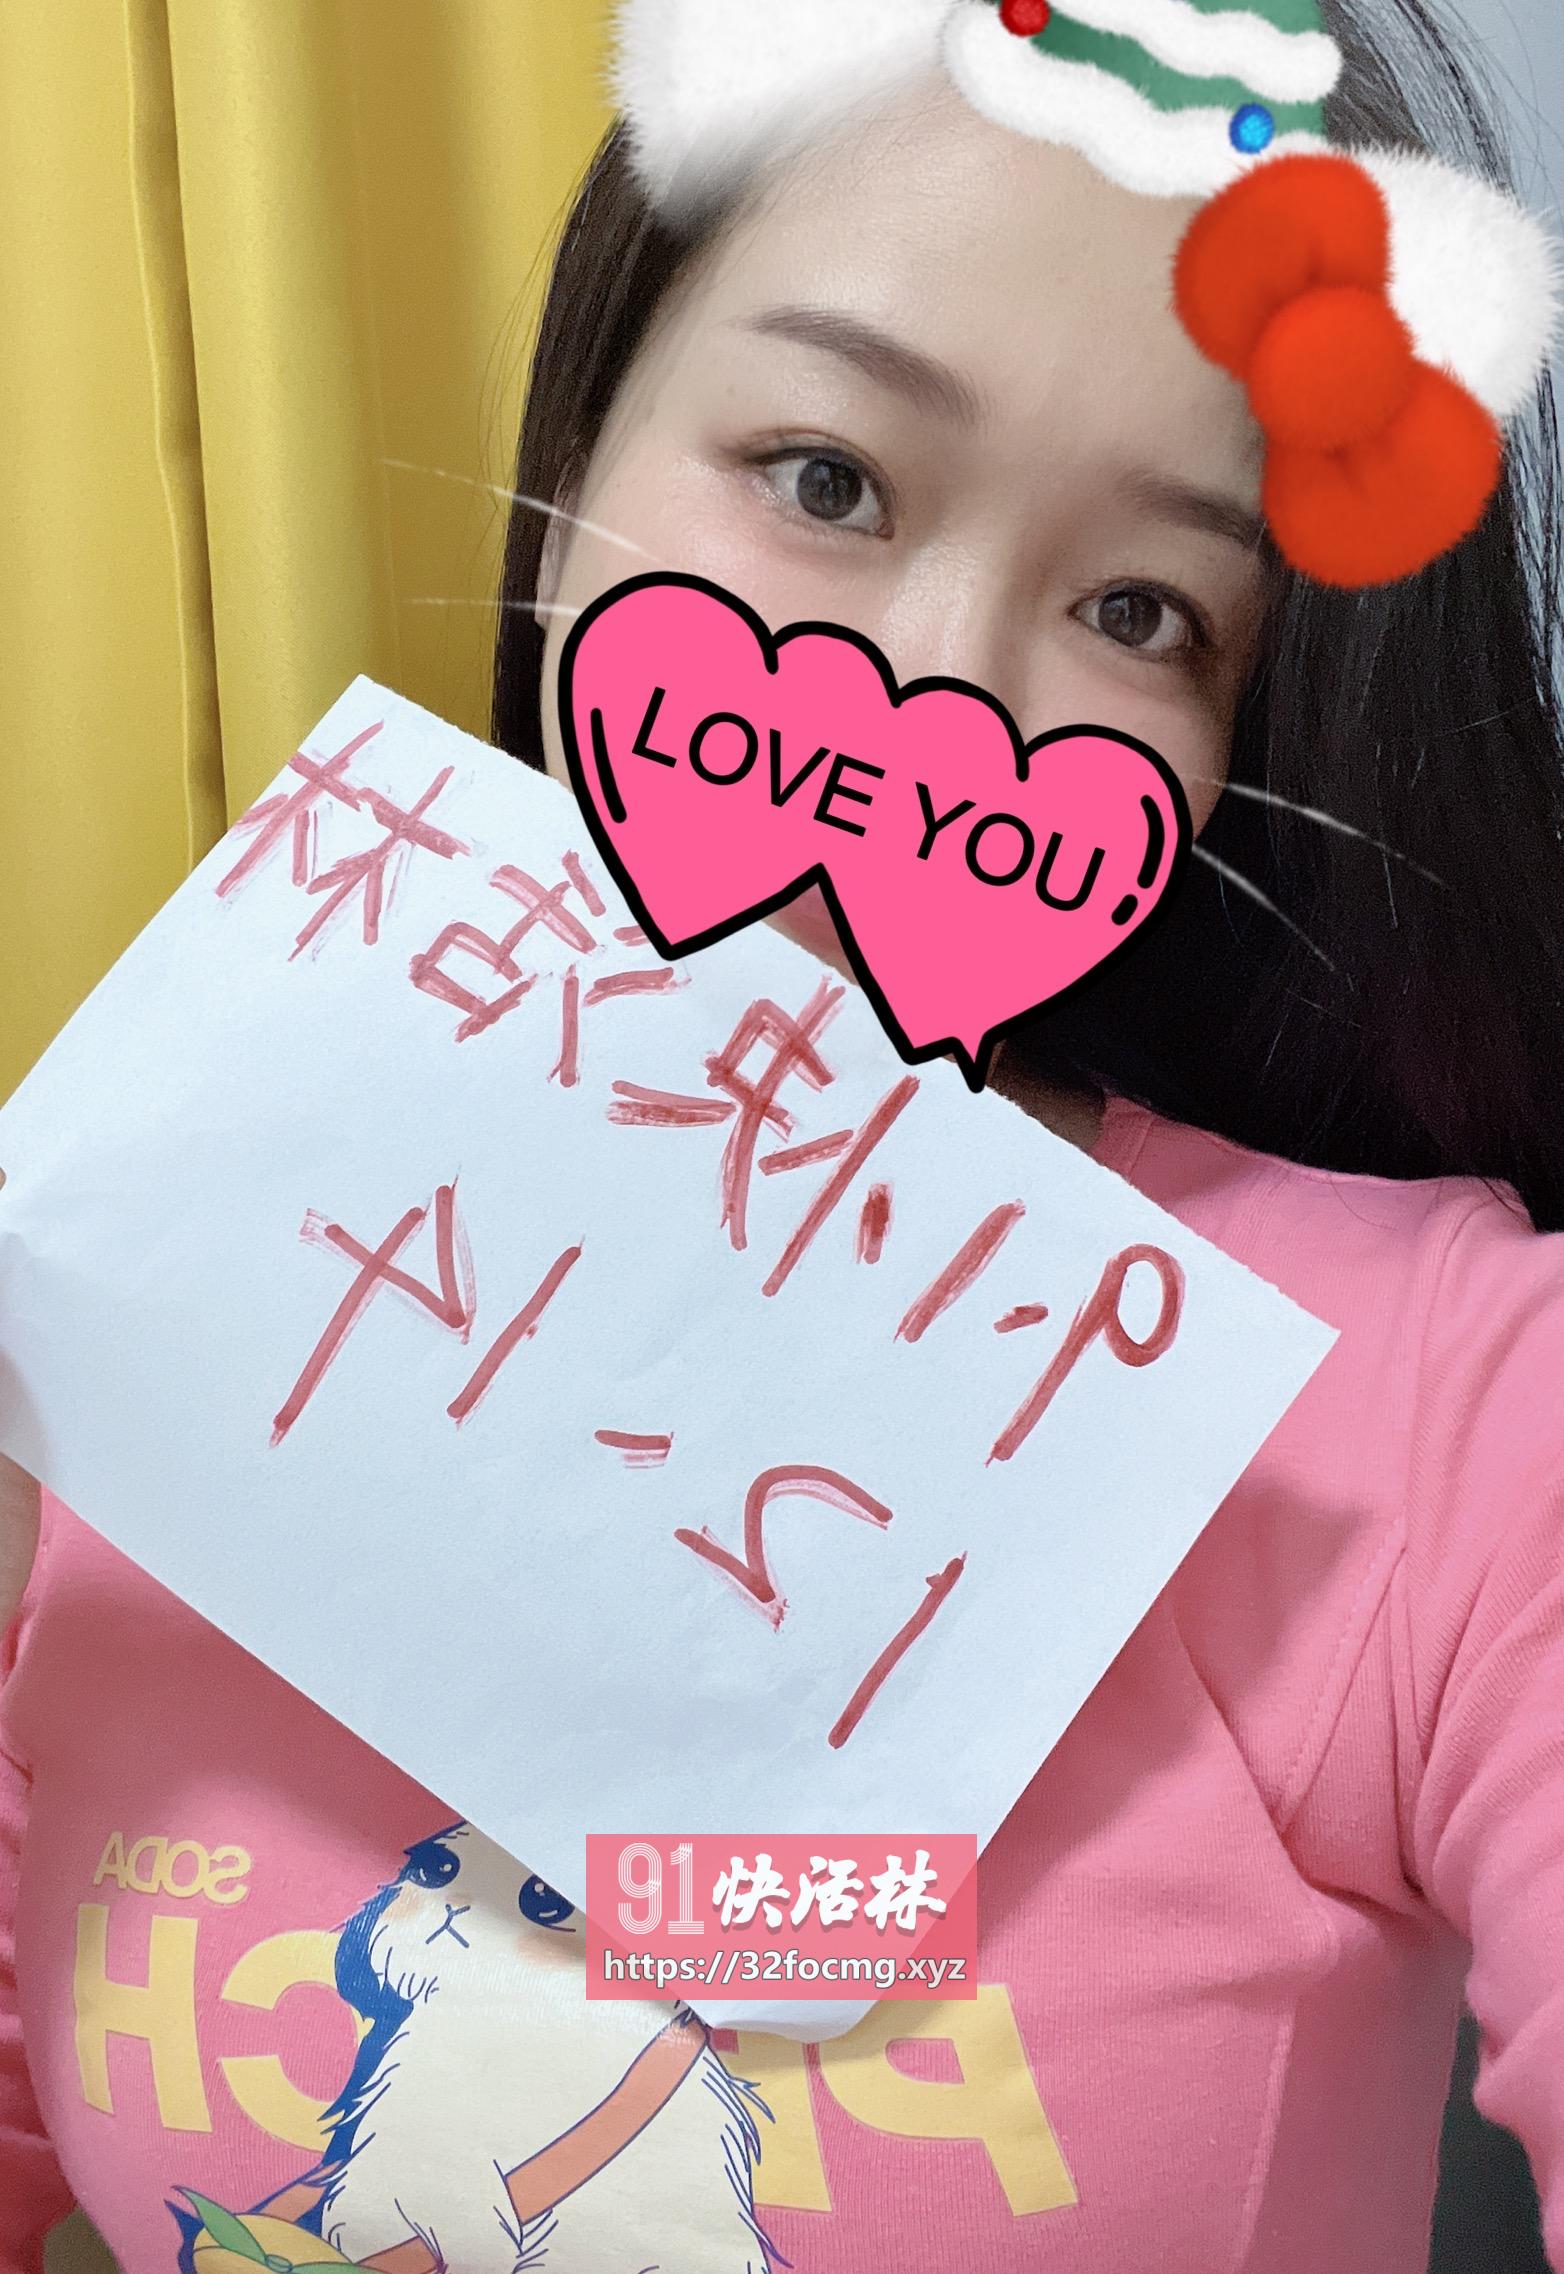 LOVE YOU
91快活林
12-14
SODA
91快活林
https://32focmg.xyz